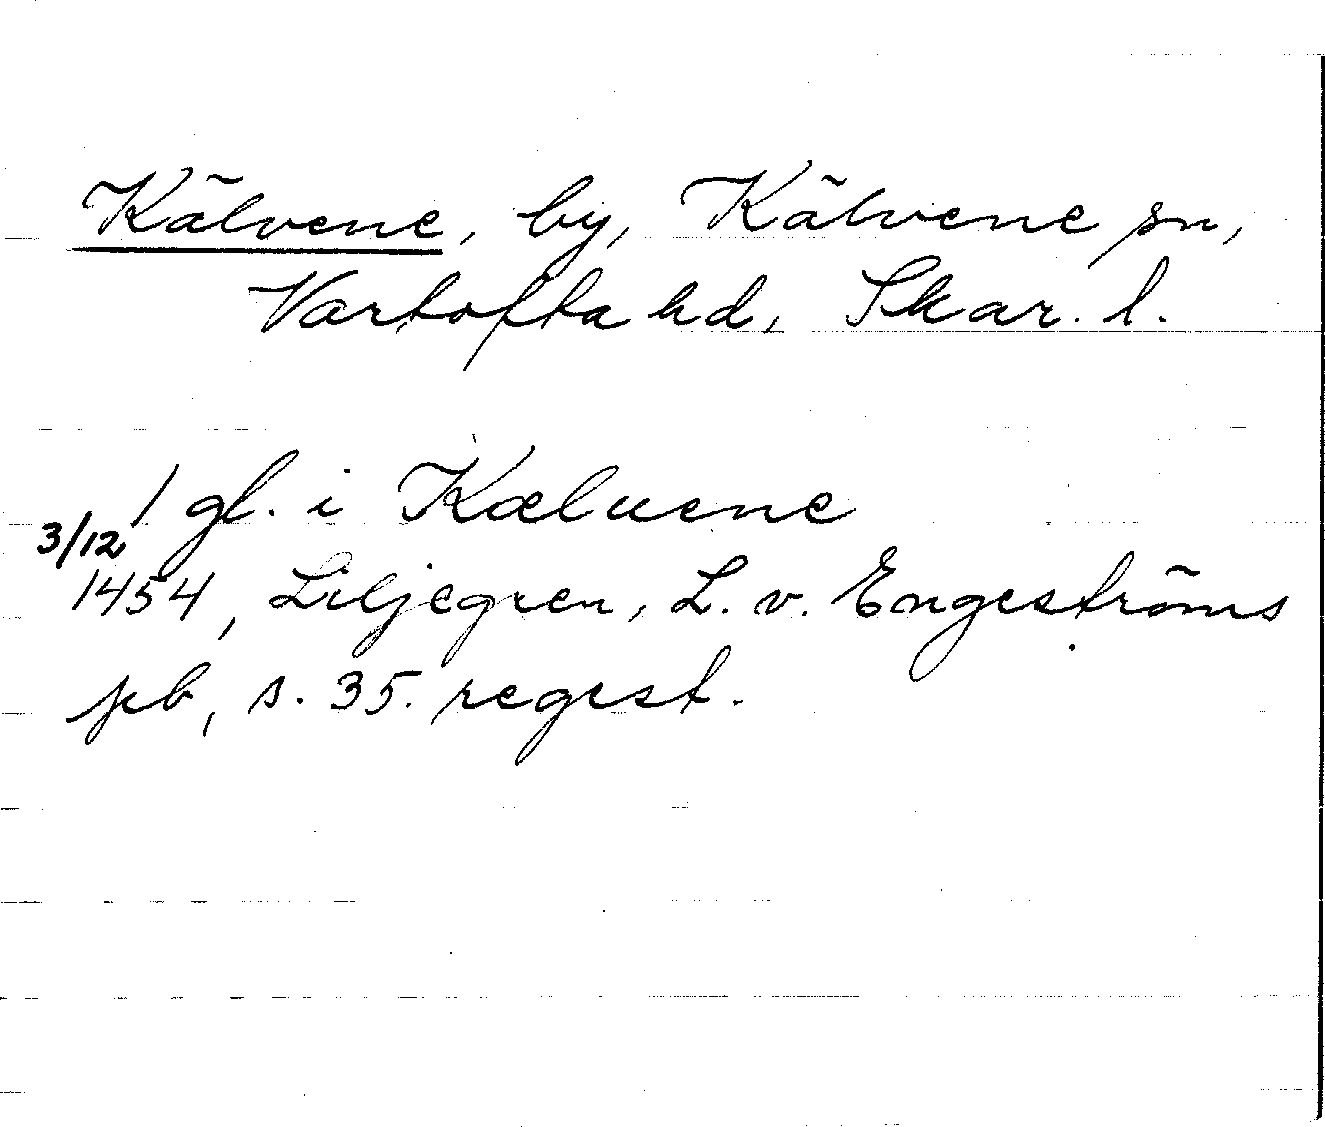 Kälvene, by, Kälvene sn,
Vartofta hd, Skar. l.
1 gl. i Kæluene
3/12
1454, Liljegren, L. v. Engeströms
pb, s. 35. regest.